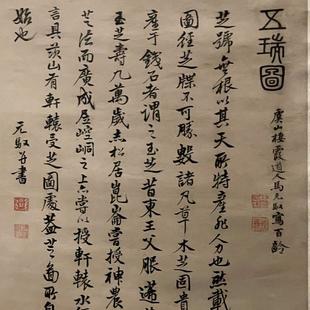 五瑞圖
虞山棲霞道人馬元馭寫百齡
芝號無根以其天所特產非人力也然載
圖徑芝牒不可勝數諸凡草木芝圖貴
產于錢石者謂之玉芝昔東王父服蓬
玉芝壽九萬歲赤松居崑崙嘗授神農
芝法而廣成居崆峒之上亦嘗以授軒轅水
言具茨山有軒轅受芝圖處蓋芝菌所自
始也
元馭并書